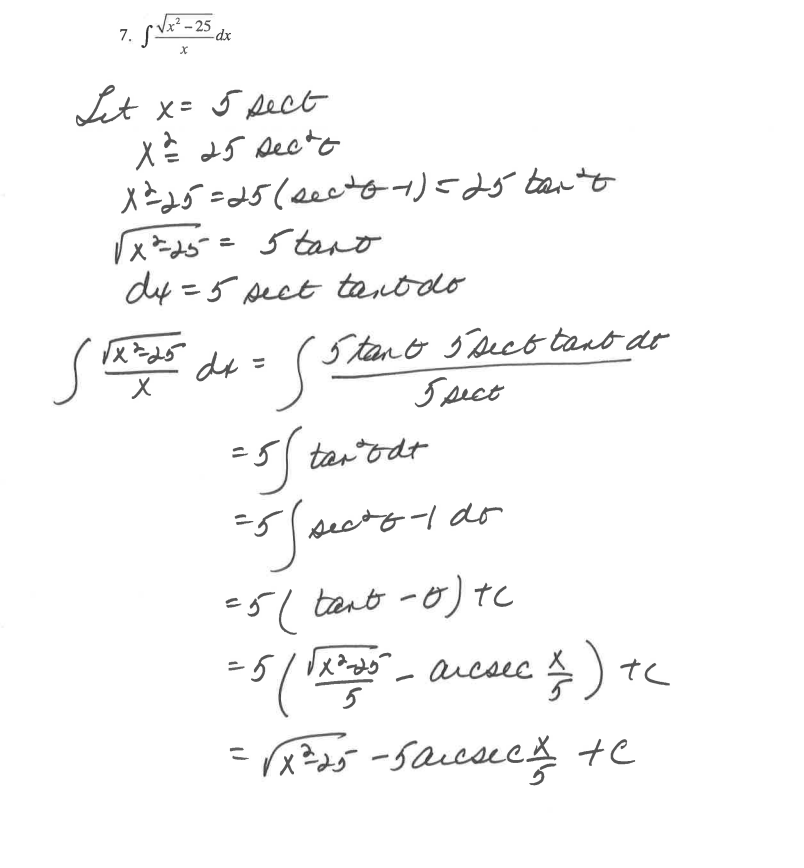 7. ∫ √(x² − 25)/x dx
Let x = 5 secθ
x² = 25 sec²θ
x² − 25 = 25(sec²θ − 1) = 25 tan²θ
√(x² − 25) = 5 tanθ
dx = 5 secθ tanθ dθ
∫ √(x² − 25)/x dx = ∫ (5 tanθ 5 secθ tanθ dθ)/(5 secθ)
= 5 ∫ tan²θ dθ
= 5 ∫ sec²θ − 1 dθ
= 5( tanθ − θ) + C
= 5( √(x² − 25)/5 − arcsec x/5 ) + C
= √(x² − 25) − 5 arcsec x/5 + C